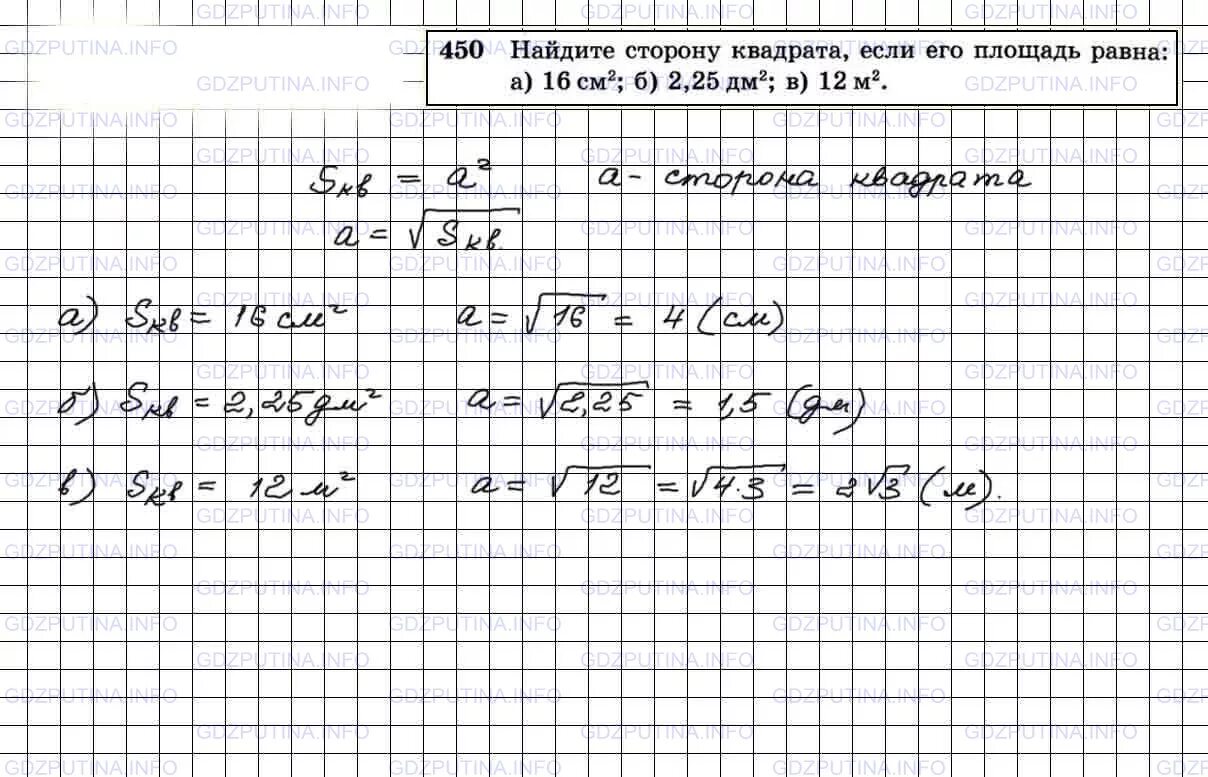 450 Найдите сторону квадрата, если его площадь равна:
а) 16 см²; б) 2,25 дм²; в) 12 м².
Sкв = a² a - сторона квадрата
a = √Sкв.
а) Sкв = 16 см² a = √16 = 4 (см)
б) Sкв = 2,25 дм² a = √2,25 = 1,5 (дм)
в) Sкв = 12 м² a = √12 = √4·3 = 2√3 (м).
GDZPUTINA.INFO